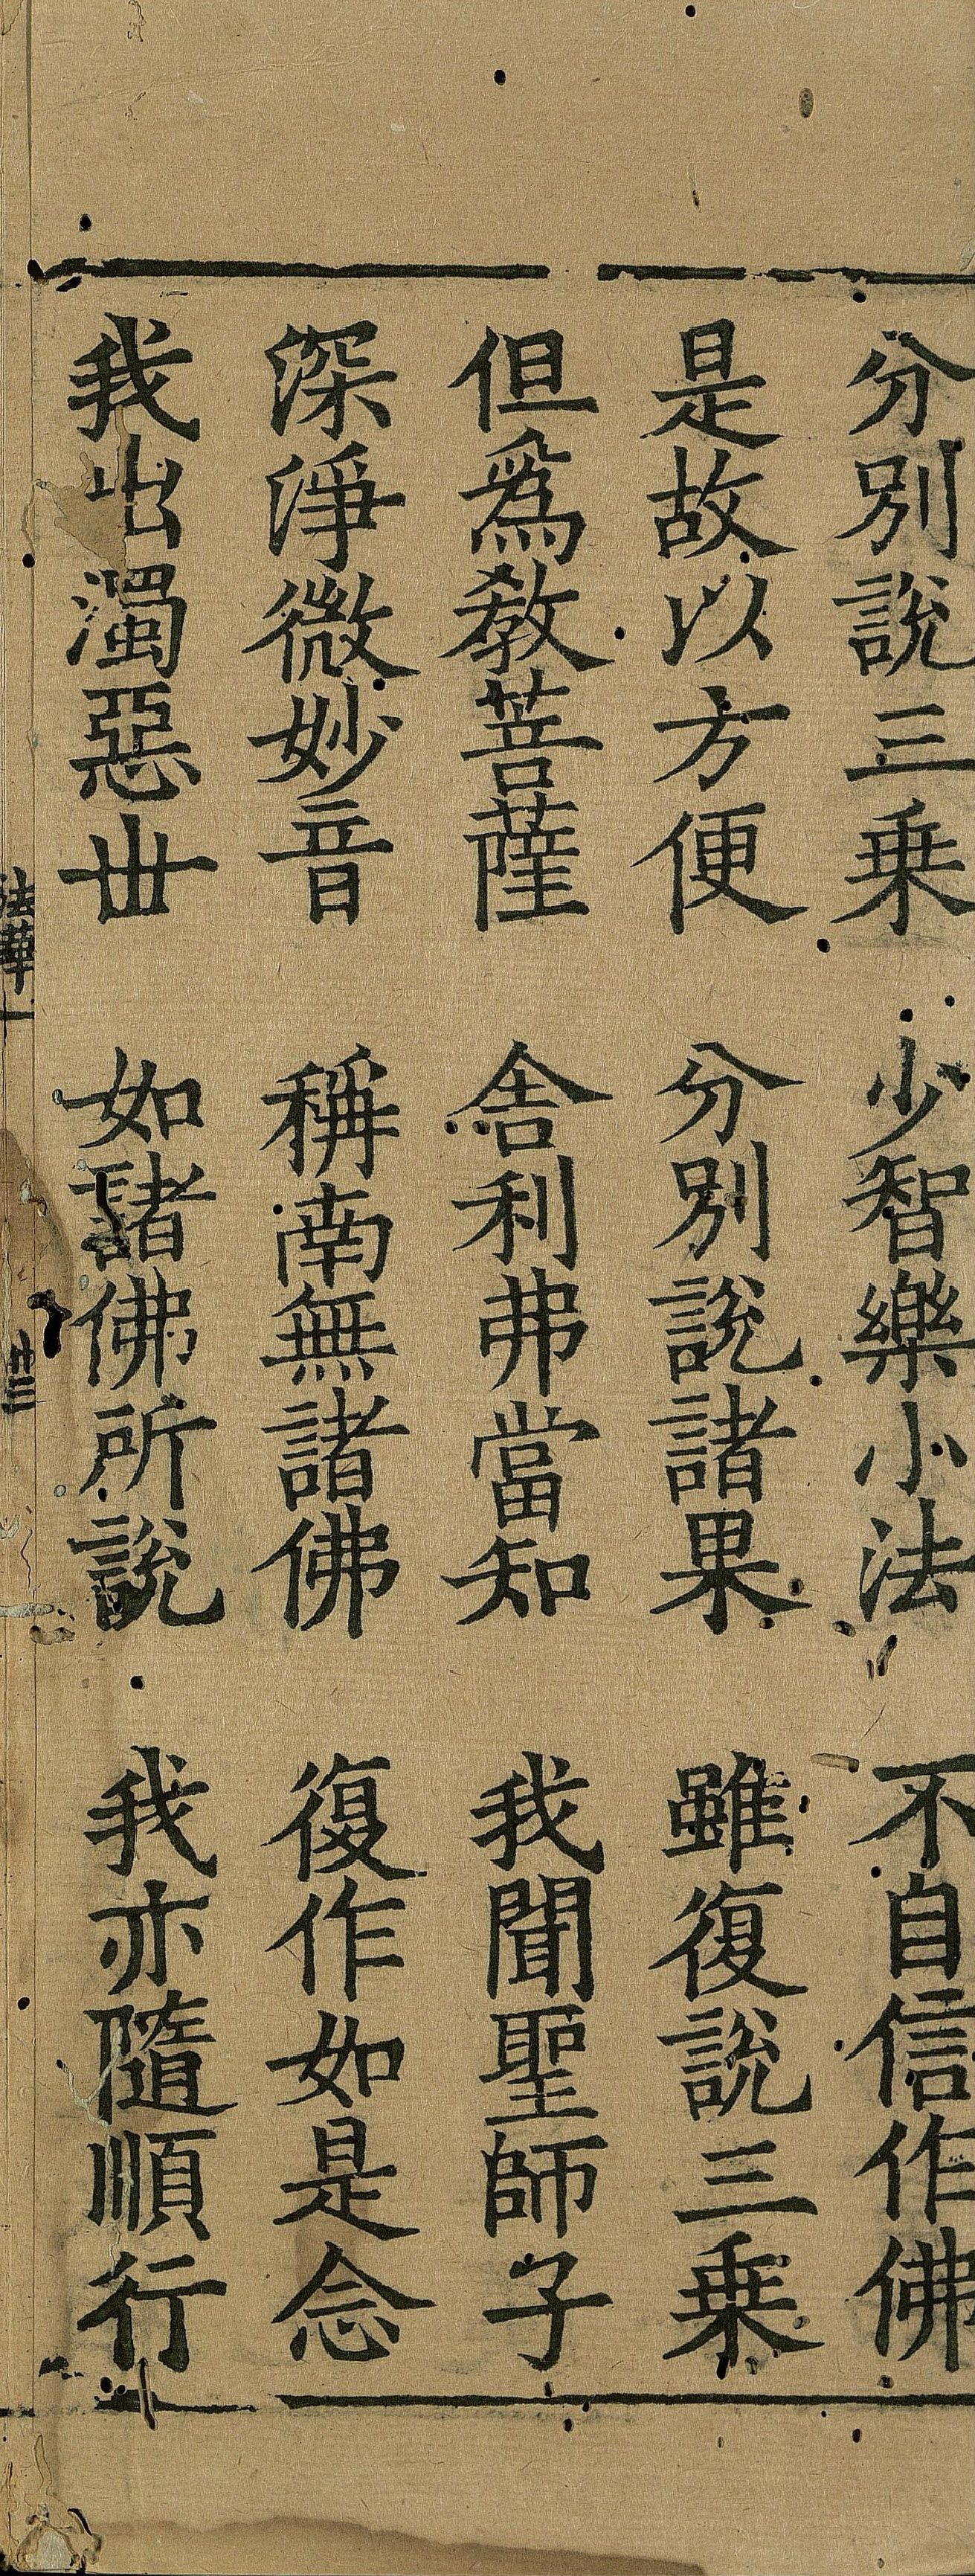 分別說三乗 少智樂小法 不自信作佛
是故以方便 分別說諸果 雖復說三乗
但爲敎菩薩 舎利弗當知 我聞聖師子
深淨微妙音 稱南無諸佛 復作如是念
我出濁惡丗 如諸佛所說 我亦隨順行
法華一 卄三